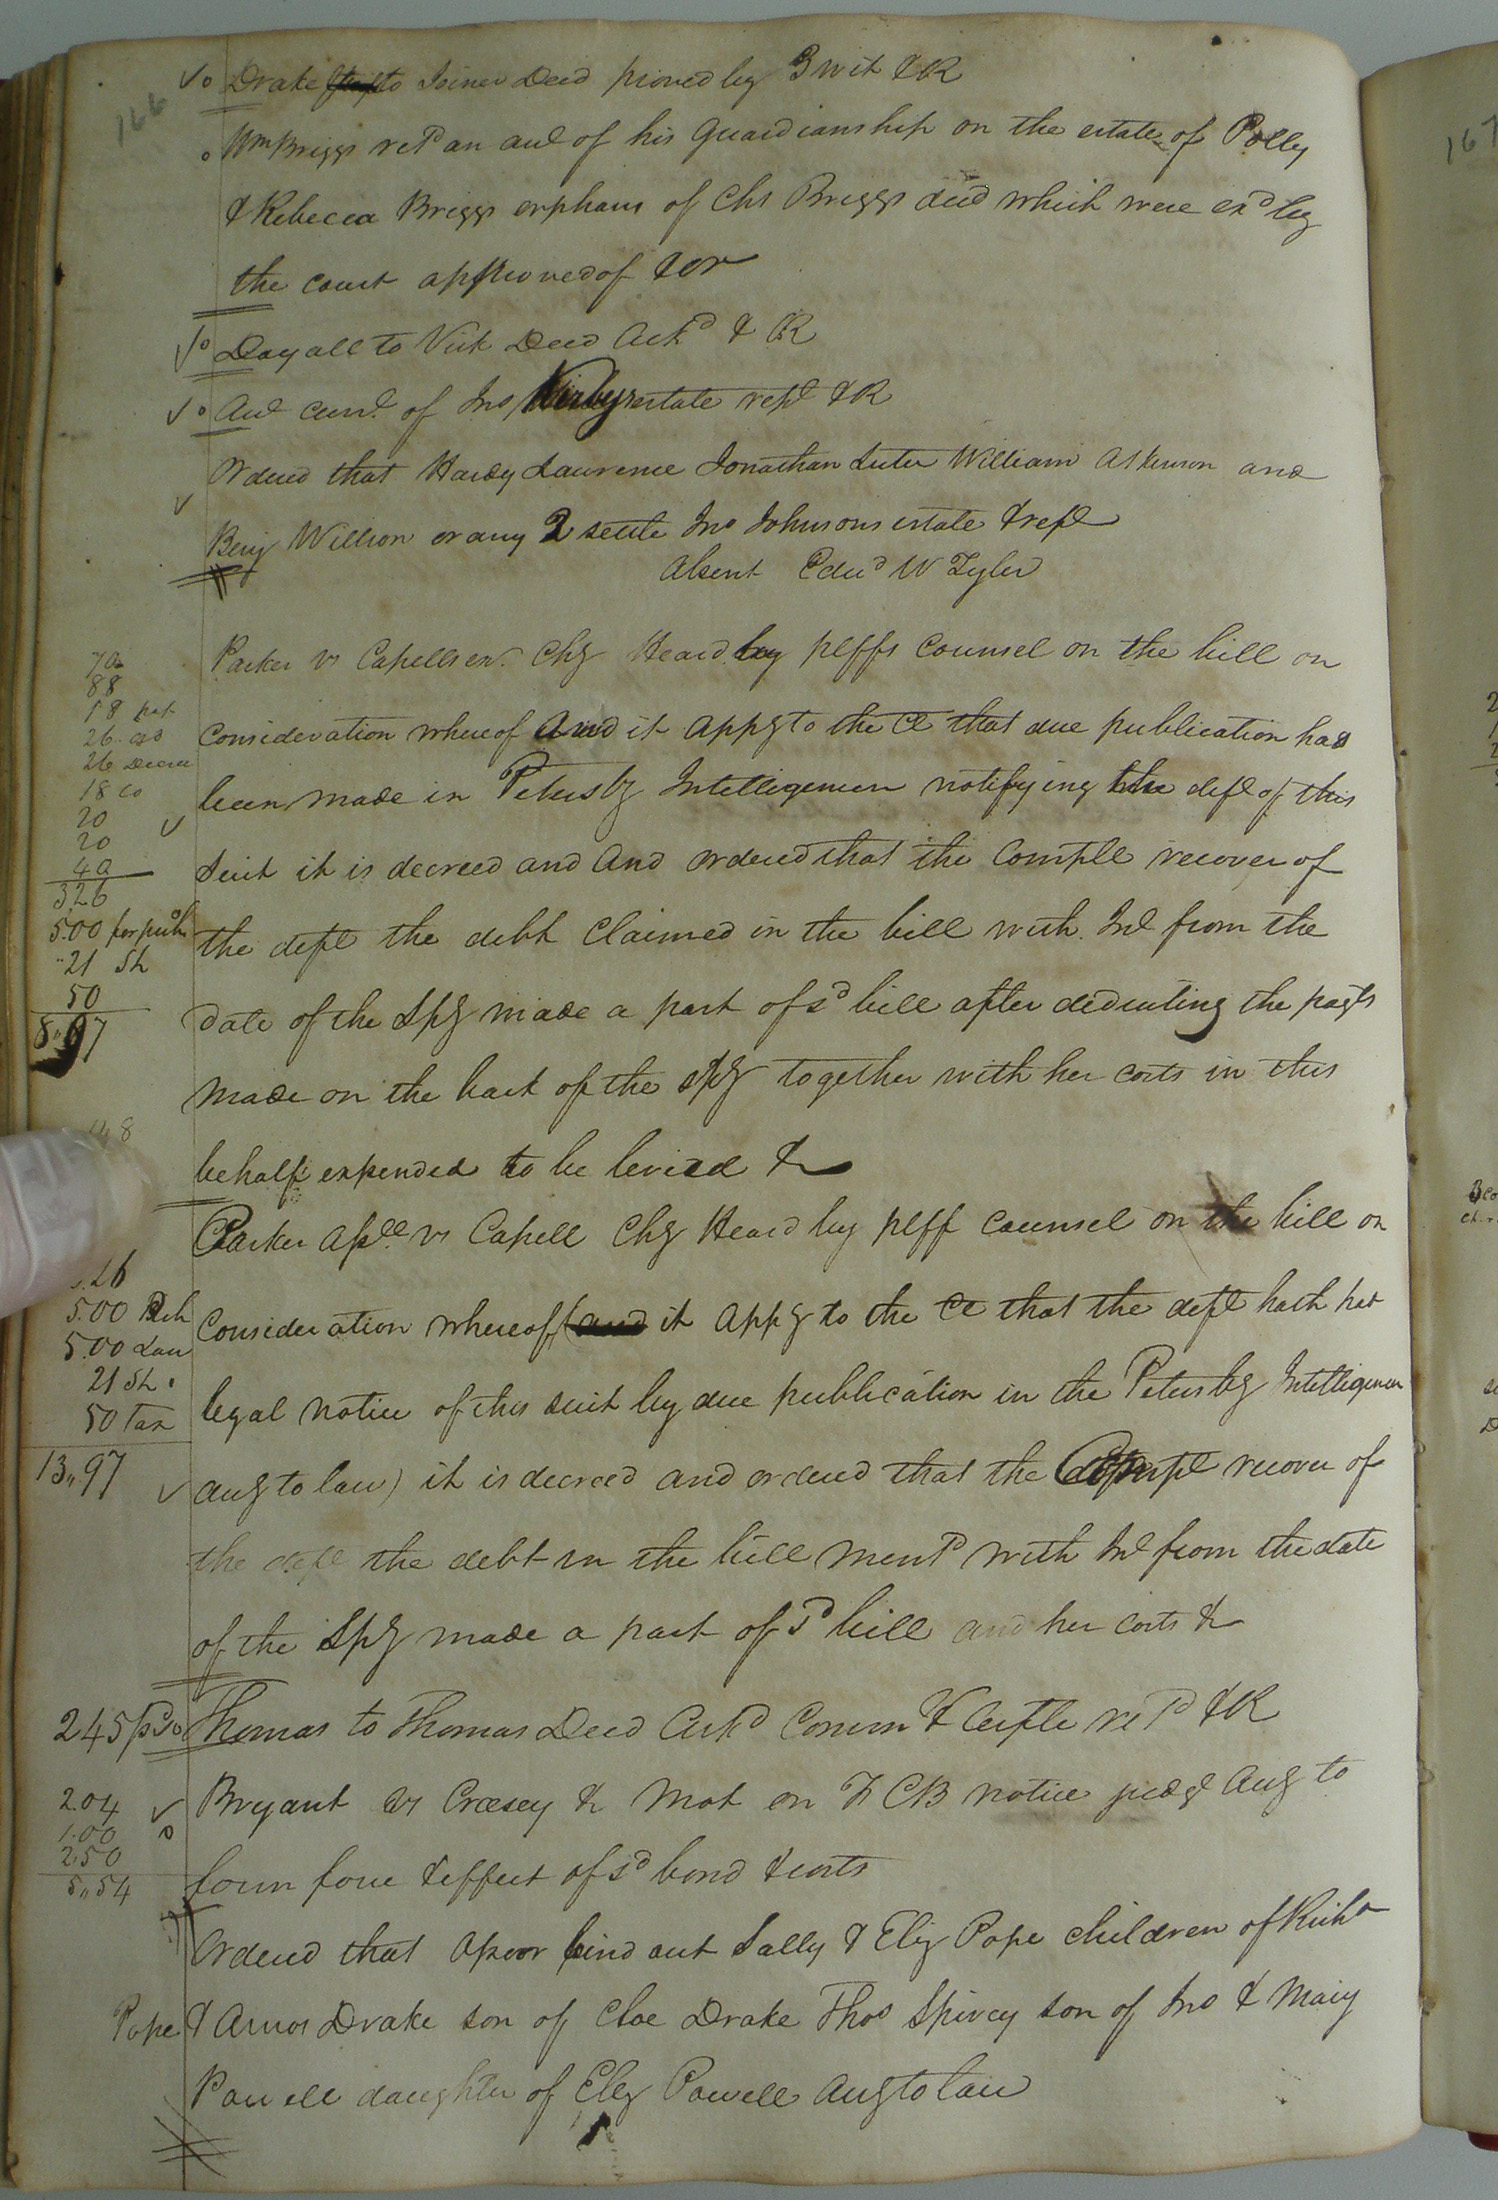 166
Drake to Joiner Deed proved by 3 wit & R
Wm Briggs retd an aud of his Guardianship on the estate of Polly
& Rebecca Briggs orphans of Chs Briggs decd which were exd by
the court approved of & or
Doyall to Vick Deed Ackd & R
Aud curt of Jno Kirbys estate retd & R
Ordered that Hardy Laurence Jonathan Luter William Atkinson and
Benj Willson or any 2 settle Jno Johnsons estate & rept
Absent Edwd W Tyler
Parker vs Capells exr Chy Heard by plffs counsel on the bill on
70
88
18 pet
consideration whereof and it appg to the Ct that due publication has
26 do
26 Decree
18 co
been made in Petersbg Intelligencer notifying the deft of this
20
20
40
suit it is decreed and and ordered that the complt recover of
3.26
5.00 for pubn
the deft the debt claimed in the bill with Int from the
21 Sh
50
8.97
date of the Spg made a part of sd bill after deducting the payts
made on the back of the spg together with her costs in this
48
behalf expended to be levied &
Parker apll vs Capell Chy Heard by plff counsel on the bill on
.26
5.00 Pub
consideration whereof (and it appg to the Ct that the deft hath had
5.00 Law
21 Sh
50 Tax
legal notice of this suit by due publication in the Petersbg Intelligencer
13,,97
aug to law) it is decreed and ordered that the Complt recover of
the deft the debt in the bill mentd with Int from the date
of the Spg made a part of sd bill and her costs &
245 pd Thomas to Thomas Deed Ackd Comm & Certfe retd & R
2.04
Bryant vs Creasey & Mot on F C B notice judgt aug to
1.00
2.50
5,,54
form force & effect of sd bond & costs
Ordered that Opoor bind out Sally & Eliz Pope children of Richd
Pope & Amos Drake son of Cloe Drake Thos Spivey son of Jno & Mary
Powell daughter of Eliz Powell aug to law
167